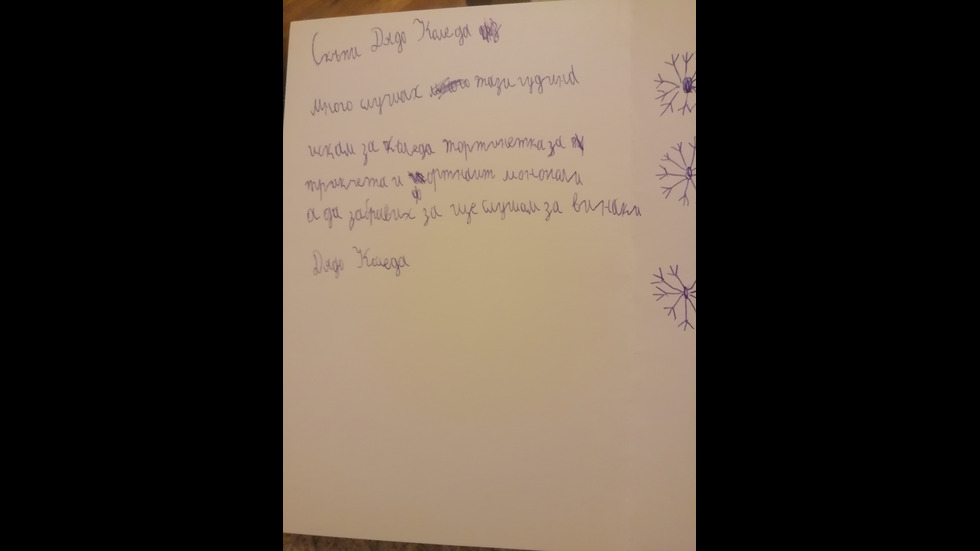 Скъпи Дядо Коледа
много слушах тази гудина
искам за Коледа тортинетка за
тракчета и фортнайт монопали
а да забравих за ще слушам за винаги
Дядо Коледа